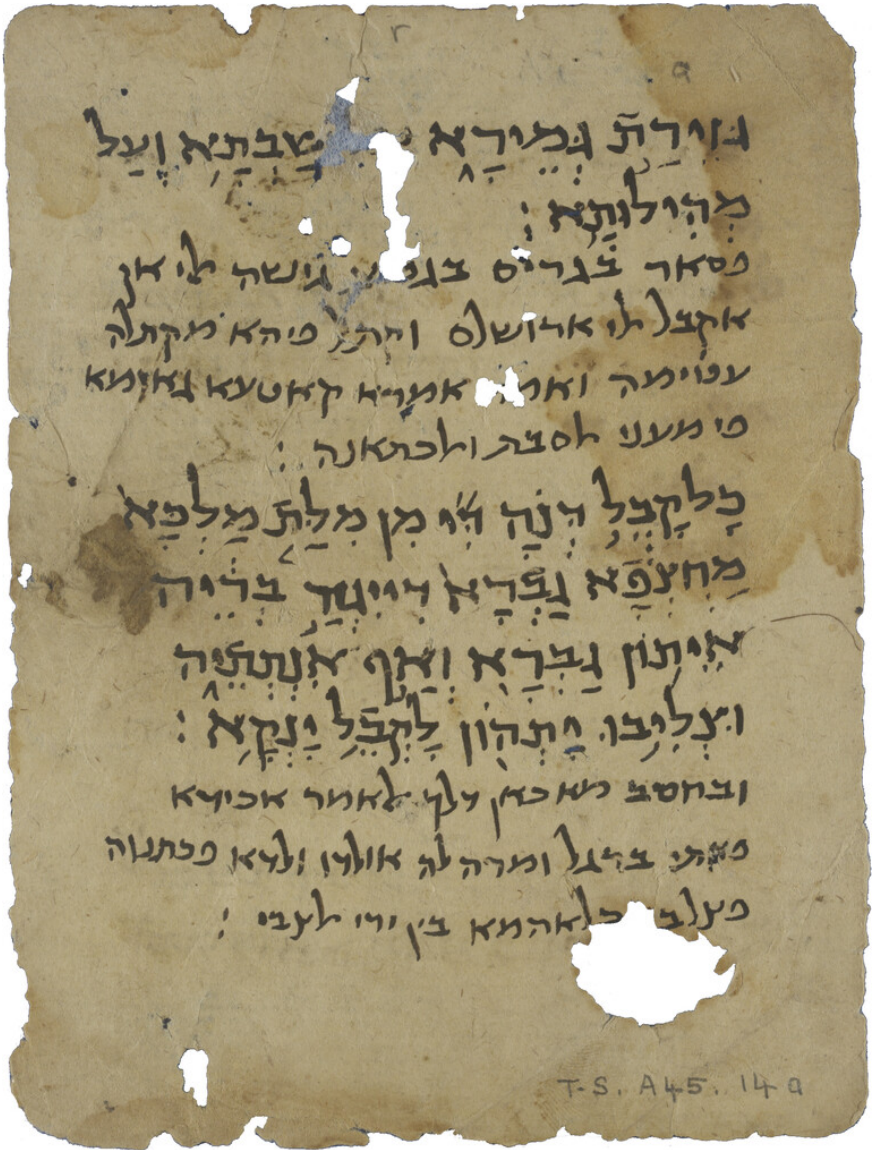 גְּזֵירַת גְּמֵירָא שַׁבְּתָא וְעַל
מְהִילוּתָא :
פסאר בגריס גישה אלי אן
אקבל אלי ארושלם וקתל פיהא מקתלה
עטימה אמרא קאטעא גאזמא
פי מעני אלסבת ואלכתאנה :
כָּלקֳבֵל דְּנָה דִּי מִן מִלַּת מַלְכָּא
מַחְצְפָא גַּבְרָא דִּייִגְזַר בְּרֵיהּ
אֵיתוֹן גַּבְרָא וְאַף אִנְתְּתֵיהּ
וּצְלִיבוּ יָתְהוֹן לָקֳבֵל יַנְקָא :
ובחסב מא כאן דלך אלאמר אכידא
ברגל ומרה לה אולדו ולדא פכתנוה
בין ידי אלצבי :
T-S. A45. 14 a